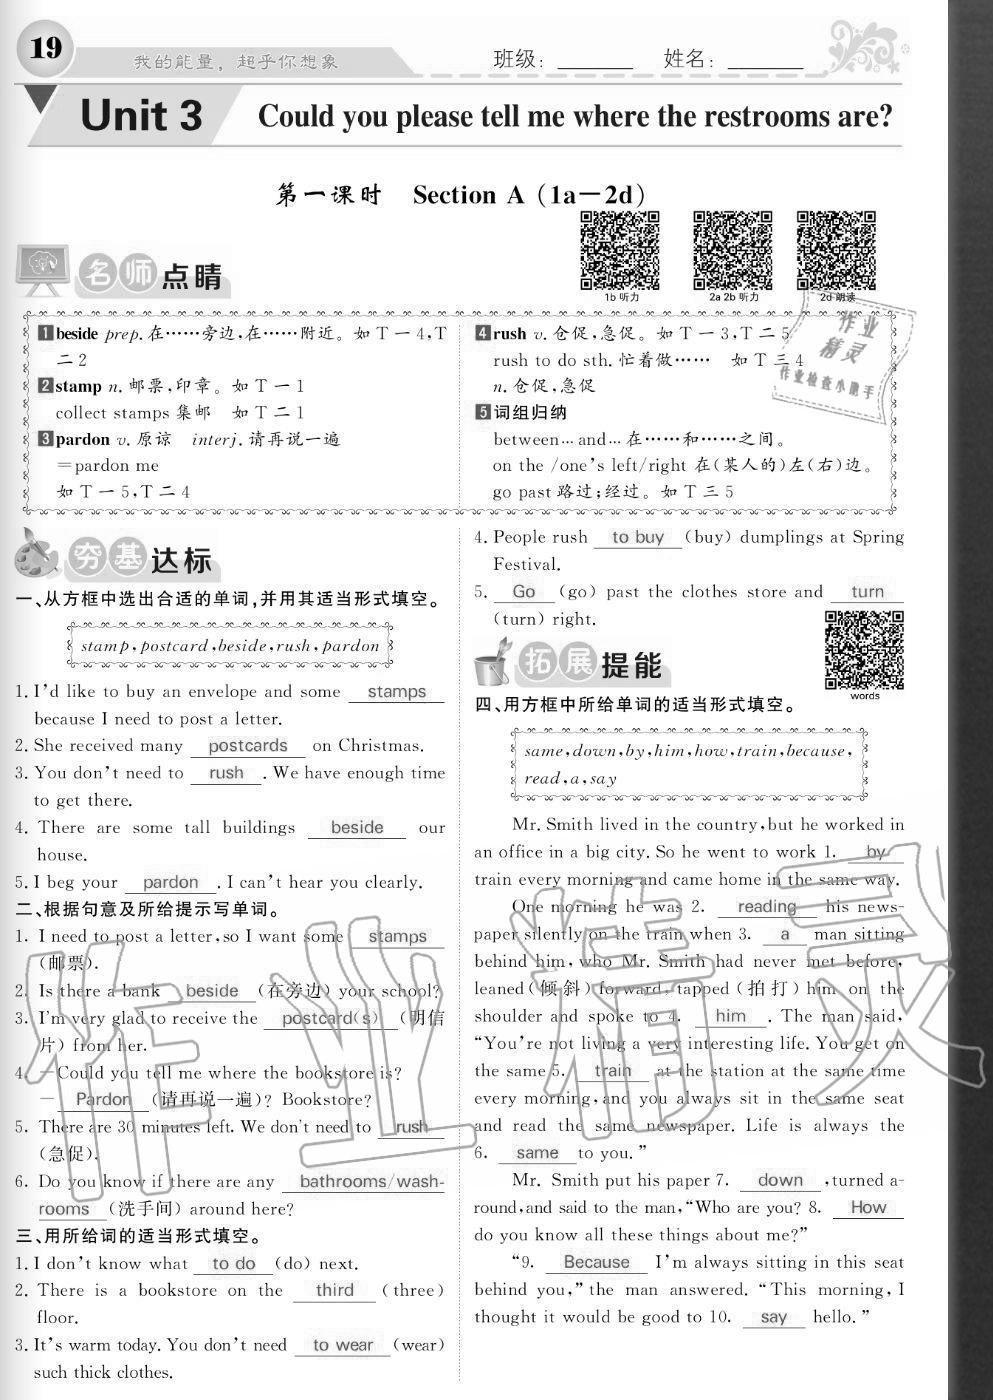 19
我的能量，超乎你想象
班级：
姓名：
Unit 3
Could you please tell me where the restrooms are?
第一课时 Section A (1a－2d)
名师点睛
1b 听力
2a 2b 听力
2d 朗读
1 beside prep. 在……旁边,在……附近。如 T 一 4,T
二 2
2 stamp n. 邮票,印章。如 T 一 1
collect stamps 集邮 如 T 二 1
3 pardon v. 原谅 interj. 请再说一遍
＝pardon me
如 T 一 5,T 二 4
4 rush v. 仓促,急促。如 T 一 3,T 二 5
rush to do sth. 忙着做…… 如 T 三 4
n. 仓促,急促
5 词组归纳
between… and… 在……和……之间。
on the /one's left/right 在(某人的)左(右)边。
go past 路过;经过。如 T 三 5
作业
精灵
作业检查小助手
夯基达标
一、从方框中选出合适的单词,并用其适当形式填空。
stamp, postcard, beside, rush, pardon
1. I'd like to buy an envelope and some stamps
because I need to post a letter.
2. She received many postcards on Christmas.
3. You don't need to rush . We have enough time
to get there.
4. There are some tall buildings beside our
house.
5. I beg your pardon . I can't hear you clearly.
二、根据句意及所给提示写单词。
1. I need to post a letter,so I want some stamps
(邮票).
2. Is there a bank beside (在旁边) your school?
3. I'm very glad to receive the postcard(s) (明信
片) from her.
4. －Could you tell me where the bookstore is?
－ Pardon (请再说一遍)? Bookstore?
5. There are 30 minutes left. We don't need to rush
(急促).
6. Do you know if there are any bathrooms/wash-
rooms (洗手间) around here?
三、用所给词的适当形式填空。
1. I don't know what to do (do) next.
2. There is a bookstore on the third (three)
floor.
3. It's warm today. You don't need to wear (wear)
such thick clothes.
4. People rush to buy (buy) dumplings at Spring
Festival.
5. Go (go) past the clothes store and turn
(turn) right.
拓展提能
words
四、用方框中所给单词的适当形式填空。
same, down, by, him, how, train, because,
read, a, say
Mr. Smith lived in the country,but he worked in
an office in a big city. So he went to work 1. by
train every morning and came home in the same way.
One morning he was 2. reading his news-
paper silently on the train when 3. a man sitting
behind him, who Mr. Smith had never met before,
leaned(倾斜) forward, tapped (拍打) him on the
shoulder and spoke to 4. him . The man said,
"You're not living a very interesting life. You get on
the same 5. train at the station at the same time
every morning,and you always sit in the same seat
and read the same newspaper. Life is always the
6. same to you."
Mr. Smith put his paper 7. down ,turned a-
round,and said to the man,"Who are you? 8. How
do you know all these things about me?"
"9. Because I'm always sitting in this seat
behind you," the man answered. "This morning, I
thought it would be good to 10. say hello."
作业精灵